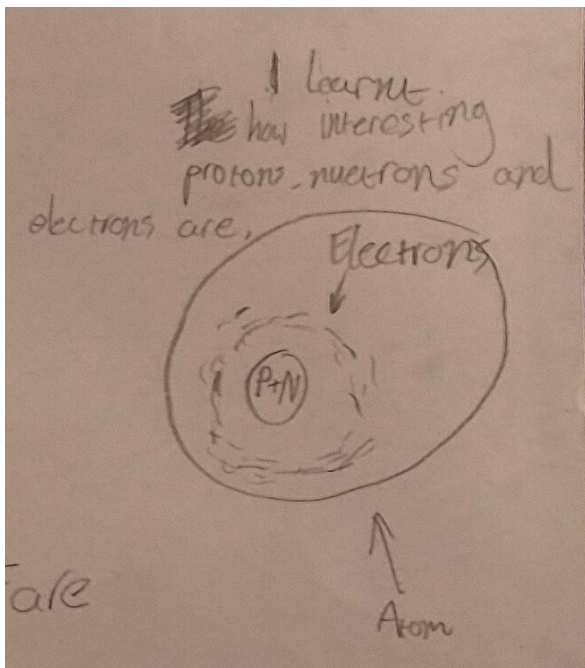 I Learnt
how interesting
protons, nuetrons and
electrons are.
Electrons
P+N
are
Atom